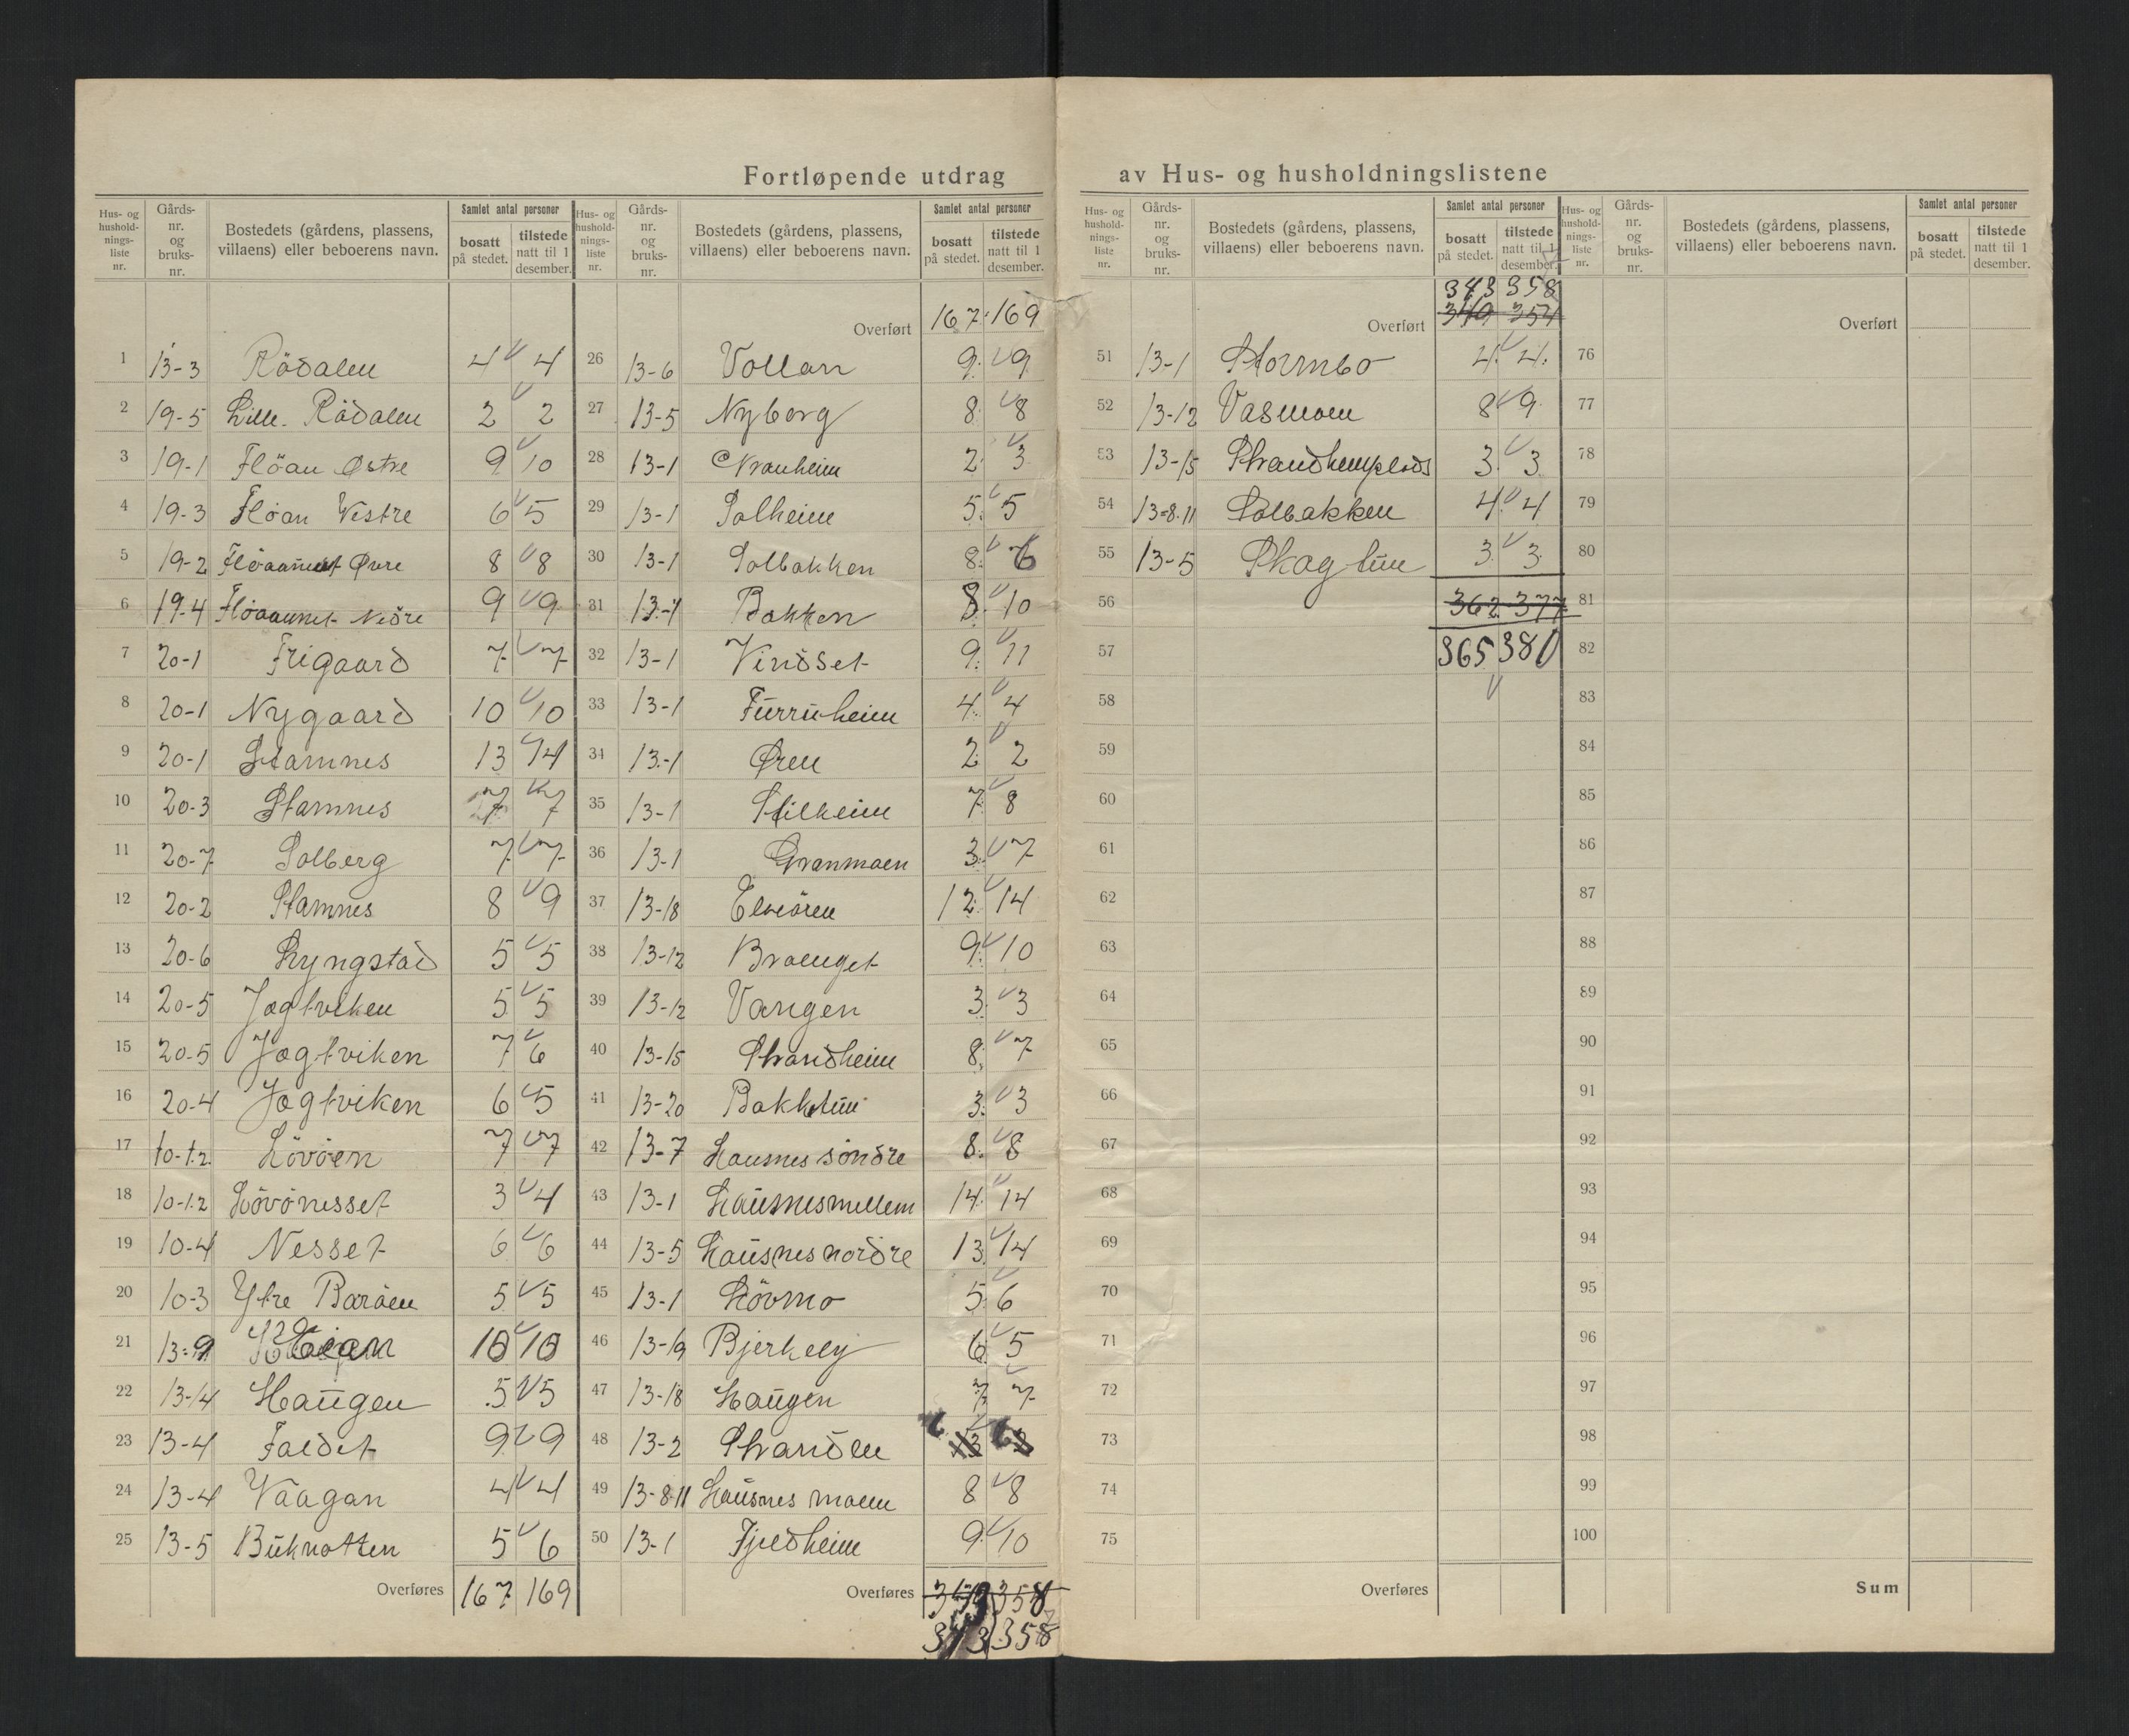 Fortløpende utdrag av Hus- og husholdningslistene
Hus- og hushold-nings-liste nr.
Gårds-nr. og bruks-nr.
Bostedets (gårdens, plassens, villaens) eller beboerens navn.
Samlet antal personer
bosatt på stedet.
tilstede natt til 1 desember.
1 13-3 Rödalen 4 4
2 19-5 Lille-Rödalen 2 2
3 19-1 Flöan Østre 9 10
4 19-3 Flöan Vestre 6 5
5 19-2 Flöaunet Øvre 8 8
6 19-4 Flöaunet Nedre 9 9
7 20-1 Frigaard 7 7
8 20-1 Nygaard 10 10
9 20-1 Stamnes 13 14
10 20-3 Stamnes 7 7
11 20-7 Solberg 7 7
12 20-2 Stamnes 8 9
13 20-6 Lyngstad 5 5
14 20-5 Jagtviken 5 5
15 20-5 Jagtviken 7 6
16 20-4 Jagtviken 6 5
17 10-1.2 Lövöen 7 7
18 10-1.2 Lövönesset 3 4
19 10-4 Nesset 6 6
20 10-3 Ytre Baröen 5 5
21 13-9 10 10
22 13-14 Haugen 5 5
23 13-4 Faldet 9 9
24 13-4 Vaagan 4 4
25 13-5 Buknotten 5 6
Overføres 167 169
Hus- og hushold-nings-liste nr.
Gårds-nr. og bruks-nr.
Bostedets (gårdens, plassens, villaens) eller beboerens navn.
Samlet antal personer
bosatt på stedet.
tilstede natt til 1 desember.
Overført 167 169
26 13-6 Vollan 9 9
27 13-5 Nyborg 8 8
28 13-1 2 3
29 13-1 Solheim 5 5
30 13-1 Solbakken 8 6
31 13-4 Bakken 8 10
32 13-1 Vindset 9 11
33 13-1 Furruheim 4 4
34 13-1 Øren 2 2
35 13-1 Stilheim 7 8
36 13-1 Granmoen 3 7
37 13-18 Elveören 12 14
38 13-12 Braenget 9 10
39 13-12 Vangen 3 3
40 13-15 Strandheim 8 7
41 13-20 Bakketun 3 3
42 13-7 Hausnes söndre 8 8
43 13-1 Hausnes mellem 14 14
44 13-5 Hausnes nordre 13 14
45 13-1 Lövmo 5 6
46 13-19 Bjerkely 6 5
47 13-18 Haugen 7 7
48 13-2 Stranden 6 6
49 13-8.11 Hausnes moen 8 8
50 13-1 Fjeldheim 9 10
Overføres 349 358
343 358
Hus- og hushold-nings-liste nr.
Gårds-nr. og bruks-nr.
Bostedets (gårdens, plassens, villaens) eller beboerens navn.
Samlet antal personer
bosatt på stedet.
tilstede natt til 1 desember.
343 358
Overført 340 354
51 13-1 Stormbo 4 4
52 13-12 Vasmoen 8 9
53 13-15 Strandhemplads 3 3
54 13-8.11 Solbakken 4 4
55 13-5 Skogtun 3 3
56 362 377
57 365 381
58
59
60
61
62
63
64
65
66
67
68
69
70
71
72
73
74
75
Overføres
Hus- og hushold-nings-liste nr.
Gårds-nr. og bruks-nr.
Bostedets (gårdens, plassens, villaens) eller beboerens navn.
Samlet antal personer
bosatt på stedet.
tilstede natt til 1 desember.
Overført
76
77
78
79
80
81
82
83
84
85
86
87
88
89
90
91
92
93
94
95
96
97
98
99
100
Sum